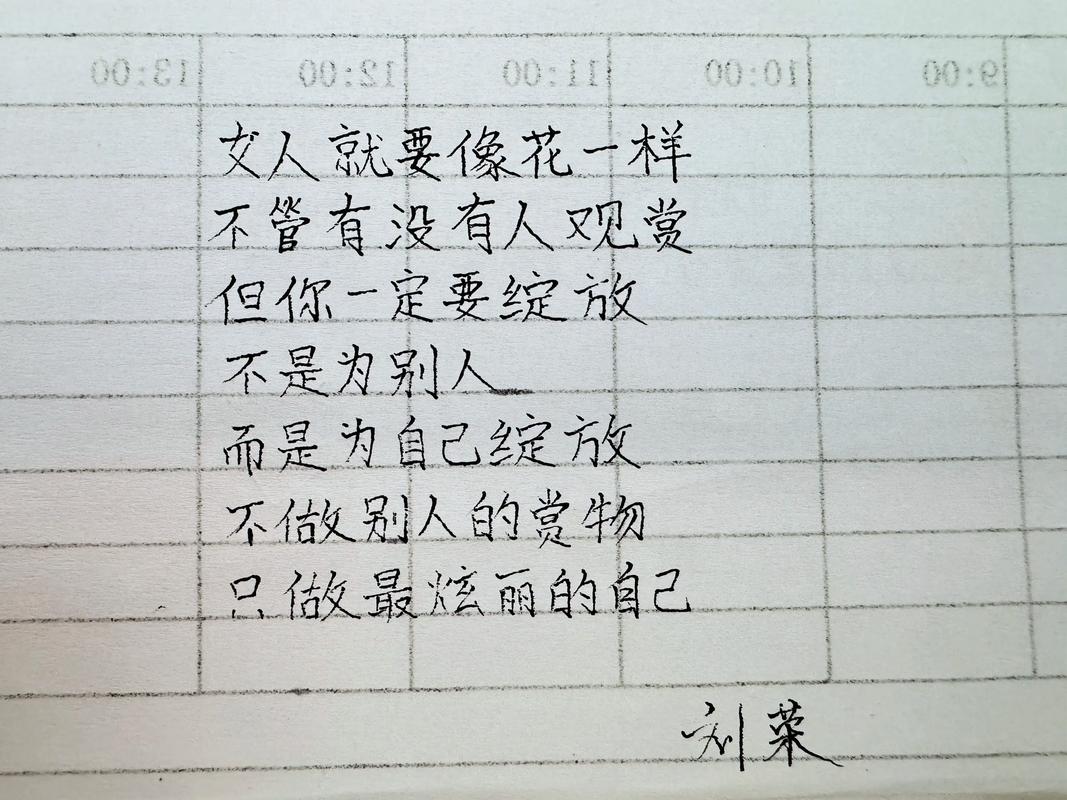 13:00 12:00 11:00 10:00 9:00
女人就要像花一样
不管有没有人观赏
但你一定要绽放
不是为别人
而是为自己绽放
不做别人的赏物
只做最炫丽的自己
刘菜